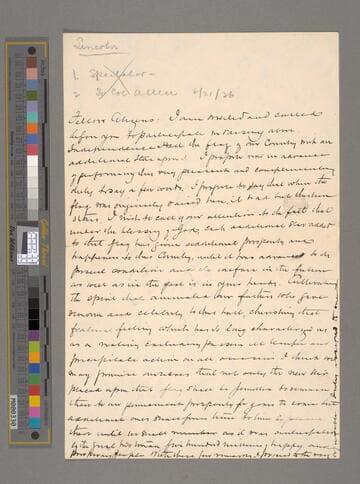 Lincoln
1. Spectator -
2 To Col Allen 6/21/36
Fellow Citizens: I am invited and called
before you to participate in raising above
Independence Hall the flag of our Country with an
additional star upon it. I propose now in advance
of performing this very pleasant and complimentary
duty to say a few words. I propose to say that when the
flag was originally raised here it had but thirteen
stars. I wish to call your attention to the fact that
under the blessing of God, each additional star added
to that flag has given additional prosperity and
happiness to this Country, until it has advanced to its
present condition and its welfare in the future
as well as in the past is in your hands. Cultivating
the spirit that animated our fathers who gave
renown and celebrity to this hall, cherishing that
fraternal feeling which has so long characterized us
as a nation, excluding passion ill temper and
precipitate action on all occasions I think we
may promise ourselves that not only the new star
placed upon that flag shall be permitted to remain
there to our permanent prosperity for years to come but
additional ones shall from time to time be placed
there until we shall number as it was anticipated
by the great historian five hundred millions, happy and
prosperous people With these few remarks I proceed to the very